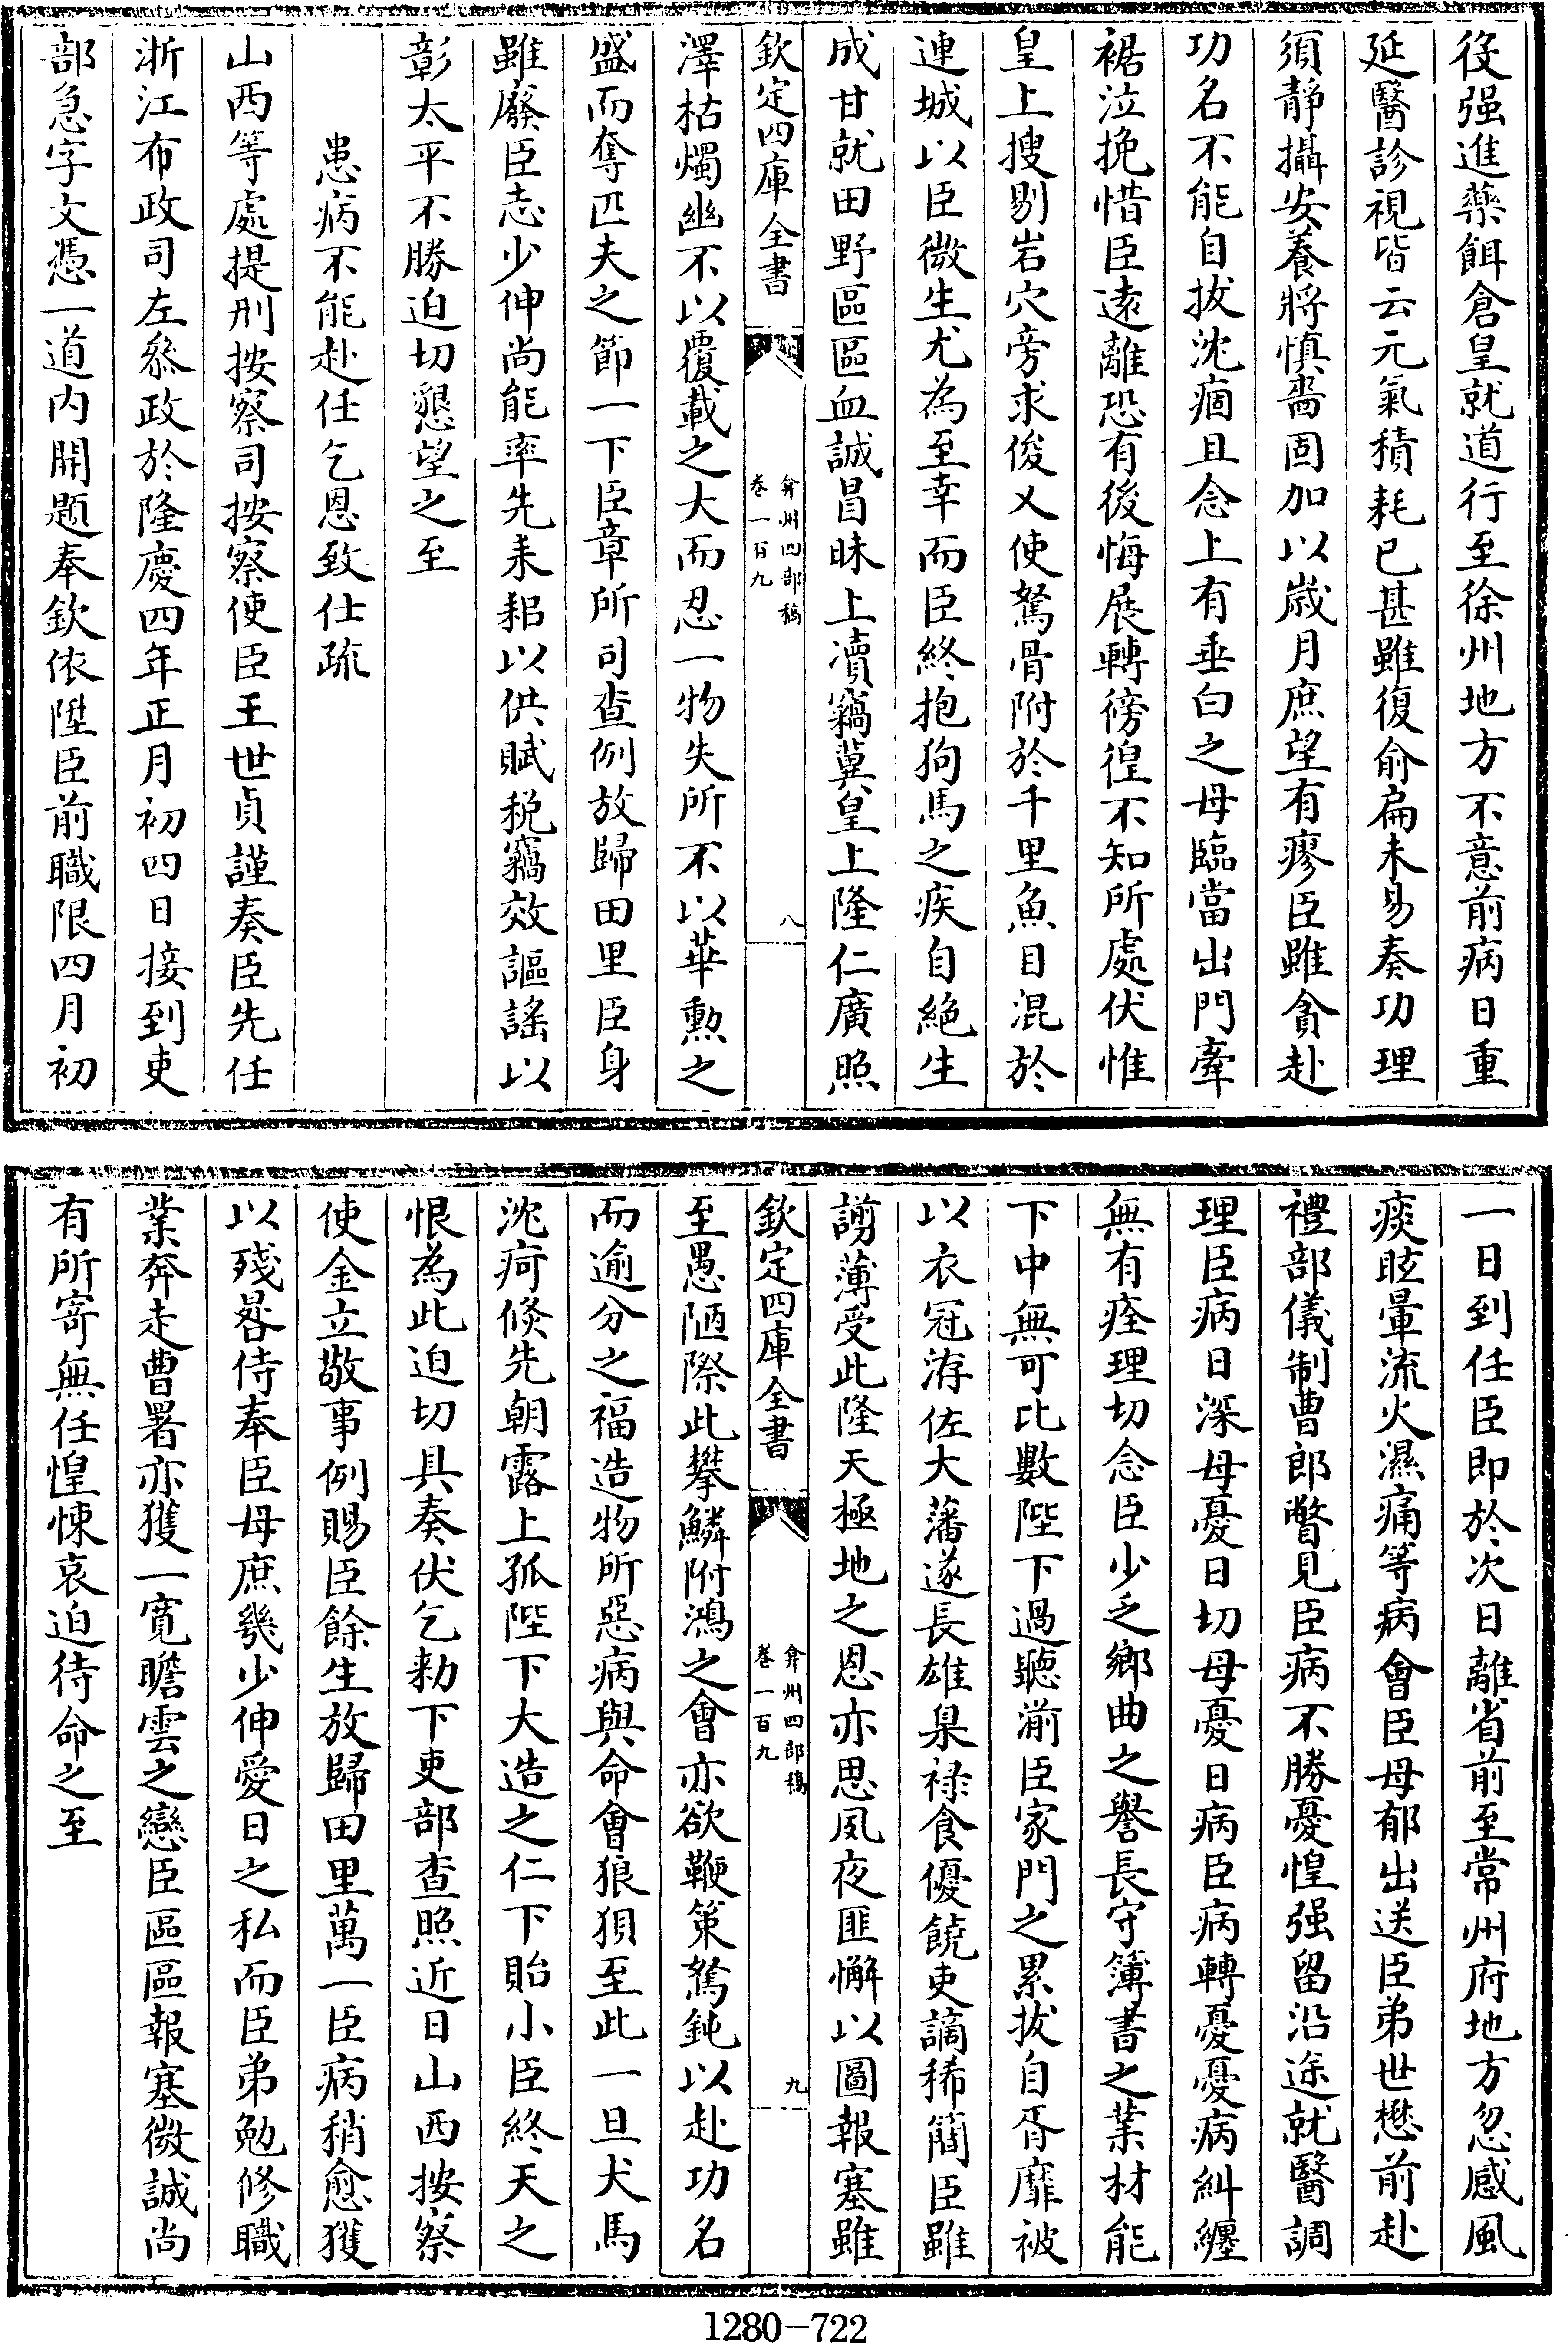 役强進藥餌倉皇就道行至徐州地方不意前病日重
延醫診視皆云元氣積耗已甚雖復俞扁未易奏功理
須靜攝安養將慎嗇固加以歲月庶望有瘳臣雖貪赴
功名不能自拔沈痼且念上有垂白之母臨當出門牽
裾泣挽惜臣遠離恐有後悔展轉徬徨不知所處伏惟
皇上搜剔岩穴旁求俊乂使駑骨附於千里魚目混於
連城以臣微生尤為至幸而臣終抱狗馬之疾自絶生
成甘就田野區區血誠冒昧上瀆竊冀皇上隆仁廣照
欽定四庫全書
弇州四部稿
卷一百九
八
澤枯燭幽不以覆載之大而忍一物失所不以華勲之
盛而奪匹夫之節一下臣章所司查例放歸田里臣身
雖廢臣志少伸尚能率先耒耜以供賦税竊效謳謡以
彰太平不勝迫切懇望之至
患病不能赴任乞恩致仕疏
山西等處提刑按察司按察使臣王世貞謹奏臣先任
浙江布政司左叅政於隆慶四年正月初四日接到吏
部急字文憑一道内開題奉欽依陞臣前職限四月初
一日到任臣即於次日離省前至常州府地方忽感風
痰眩暈流火濕痛等病會臣母郁出送臣弟世懋前赴
禮部儀制曹郎瞥見臣病不勝憂惶强留沿途就醫調
理臣病日深母憂日切母憂日病臣病轉憂憂病糾纒
無有痊理切念臣少乏鄉曲之譽長守簿書之業材能
下中無可比數陛下過聽湔臣家門之累拔自胥靡被
以衣冠洊佐大藩遂長雄臬禄食優饒吏謫稀簡臣雖
謭薄受此隆天極地之恩亦思夙夜匪懈以圖報塞雖
欽定四庫全書
弇州四部稿
卷一百九
九
至愚陋際此攀鱗附鴻之會亦欲鞭策駑鈍以赴功名
而逾分之福造物所惡病與命會狼狽至此一旦犬馬
沈疴倐先朝露上孤陛下大造之仁下貽小臣終天之
恨為此迫切具奏伏乞勅下吏部查照近日山西按察
使金立敬事例賜臣餘生放歸田里萬一臣病稍愈獲
以殘晷侍奉臣母庶幾少伸愛日之私而臣弟勉修職
業奔走曹署亦獲一寛瞻雲之戀臣區區報塞微誠尚
有所寄無任惶悚哀迫待命之至
1280-722